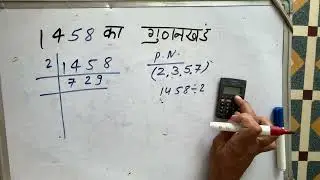 1458 का गुणनखंड
P.N.
2 1458 (2,3,5,7)
729 1458÷2